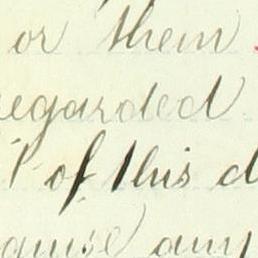 or them
regarded
of this d
any